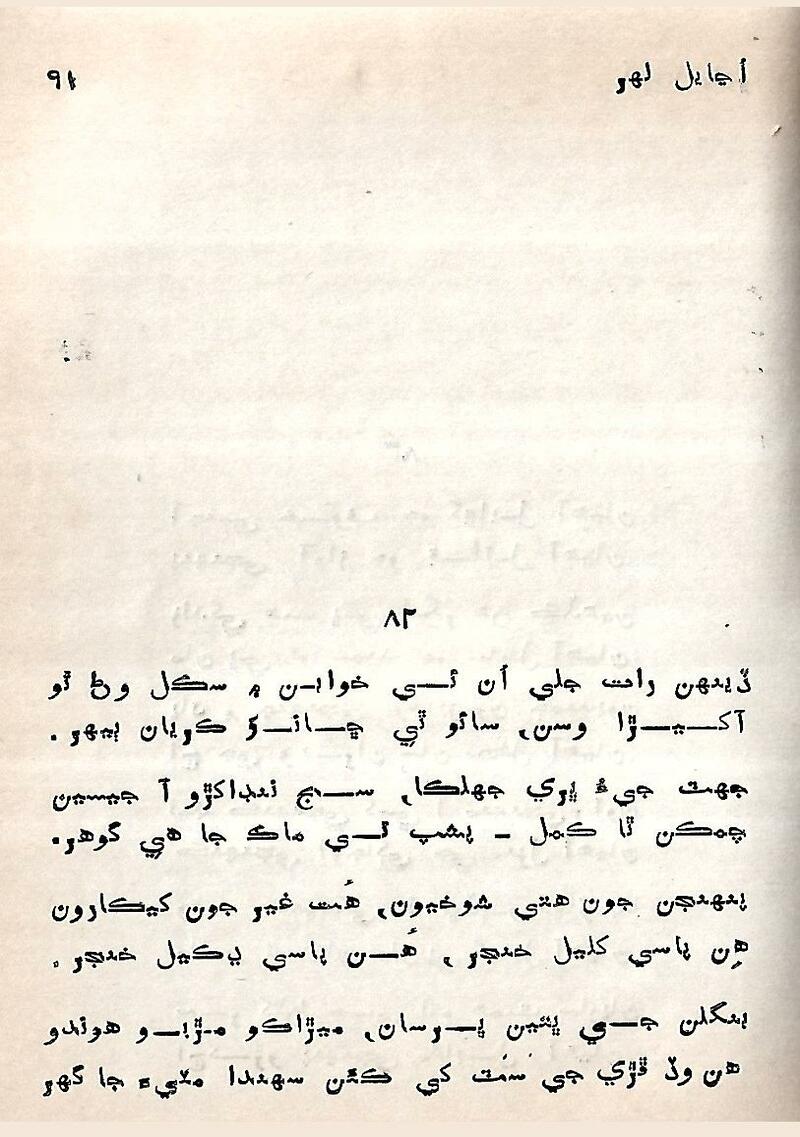 اڃايل لهر
۹۱
۸۲
ڏينهن رات جلي اُن ئي خوابن ۾ سڪل وڻ ٿو
آکيرا وسن، سائو ٿي ڇانئڙ ڪريان ٻيهر.
جهت جيءُ ڀري جهلڪا، سج ننڊاکڙو آ جيسين
چمڪن ٿا ڪمل - پشپ تي ماڪ جا هي گوهر.
پنهنجن جون هتي شوخيون، هُت غير جون کيڪارون
هِن پاسي کليل خنجر، هُن پاسي ڍڪيل خنجر.
بنگلن جي ڀتين ڀرسان، ميڙاڪو مڙيو هوندو
هن وڏ ڦڙي جي سٽ کي ڪٿن سهندا مٽيءَ جا گهر